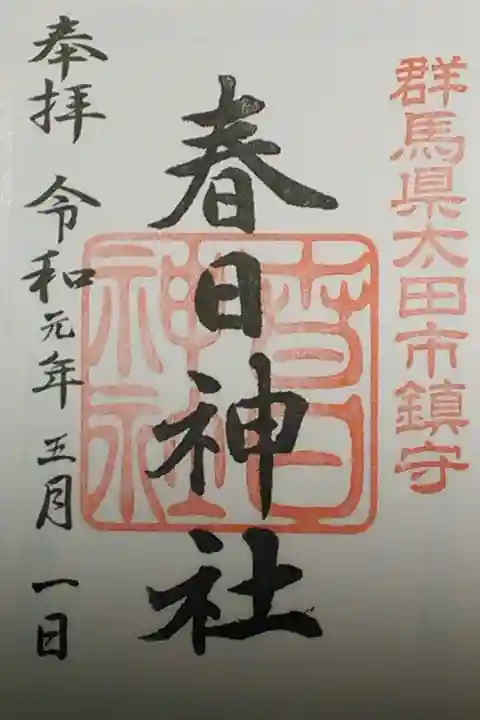 群馬県太田市鎮守
春日神社
春日
神社
奉拝 令和元年 五月 一日